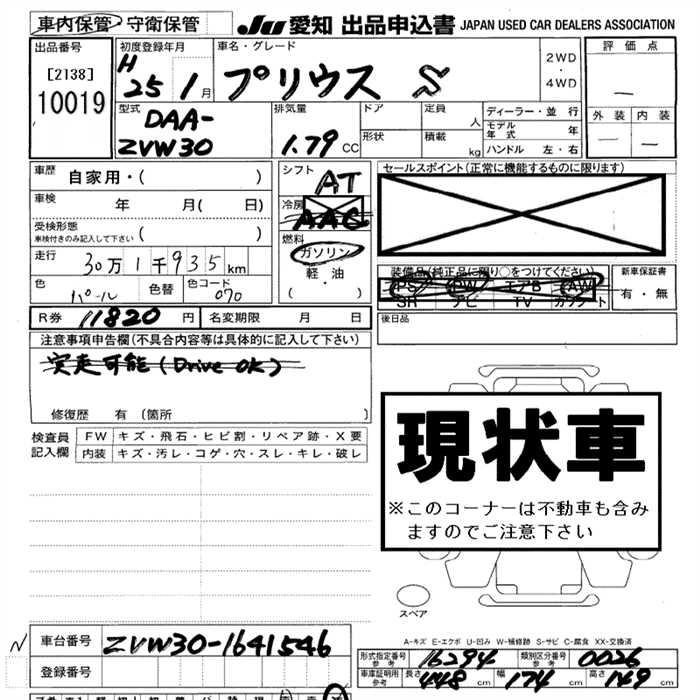 車内保管・守衛保管
JU 愛知 出品申込書 JAPAN USED CAR DEALERS ASSOCIATION
出品番号
[2138]
10019
初度登録年月
H
25 1月
車名・グレード
プリウス S
2WD
・
4WD
評価点
—
外装 内装
— —
型式
DAA-
ZVW30
排気量
1.79 CC
ドア
形状
定員
人
積載
kg
ディーラー・並行
モデル
年式
年
ハンドル 左・右
車歴 自家用・( )
車検 年 月( 日)
受検形態
車検付きのみ記入して下さい ( )
走行 30万1千935km
色 パール 色替 色コード 070
シフト AT
冷房 AAC
燃料
ガソリン
軽・油
( ・ )
セールスポイント(正常に機能するものに限ります)
装備品(純正品に限り○をつけてください)
PS PW エアB AW
SR ナビ TV カワシート
新車保証書
有・無
後日品
R券 11820 円 名変期限 月 日
注意事項申告欄(不具合内容等は具体的に記入して下さい)
実走可能(Drive OK)
修復歴 有(箇所 )
検査員
記入欄
FW キズ・飛石・ヒビ割・リペア跡・X要
内装 キズ・汚レ・コゲ・穴・スレ・キレ・破レ
現状車
※このコーナーは不動車も含み
ますのでご注意下さい
スペア
A-キズ E-エクボ U-凹み W-補修跡 S-サビ C-腐食 XX-交換済
N
車台番号 ZVW30-1641546
登録番号
形式指定番号
参考
16294
類別区分番号
参考
0026
車庫証明用
参考
長さ 448 cm 幅 174 cm 高さ 149 cm